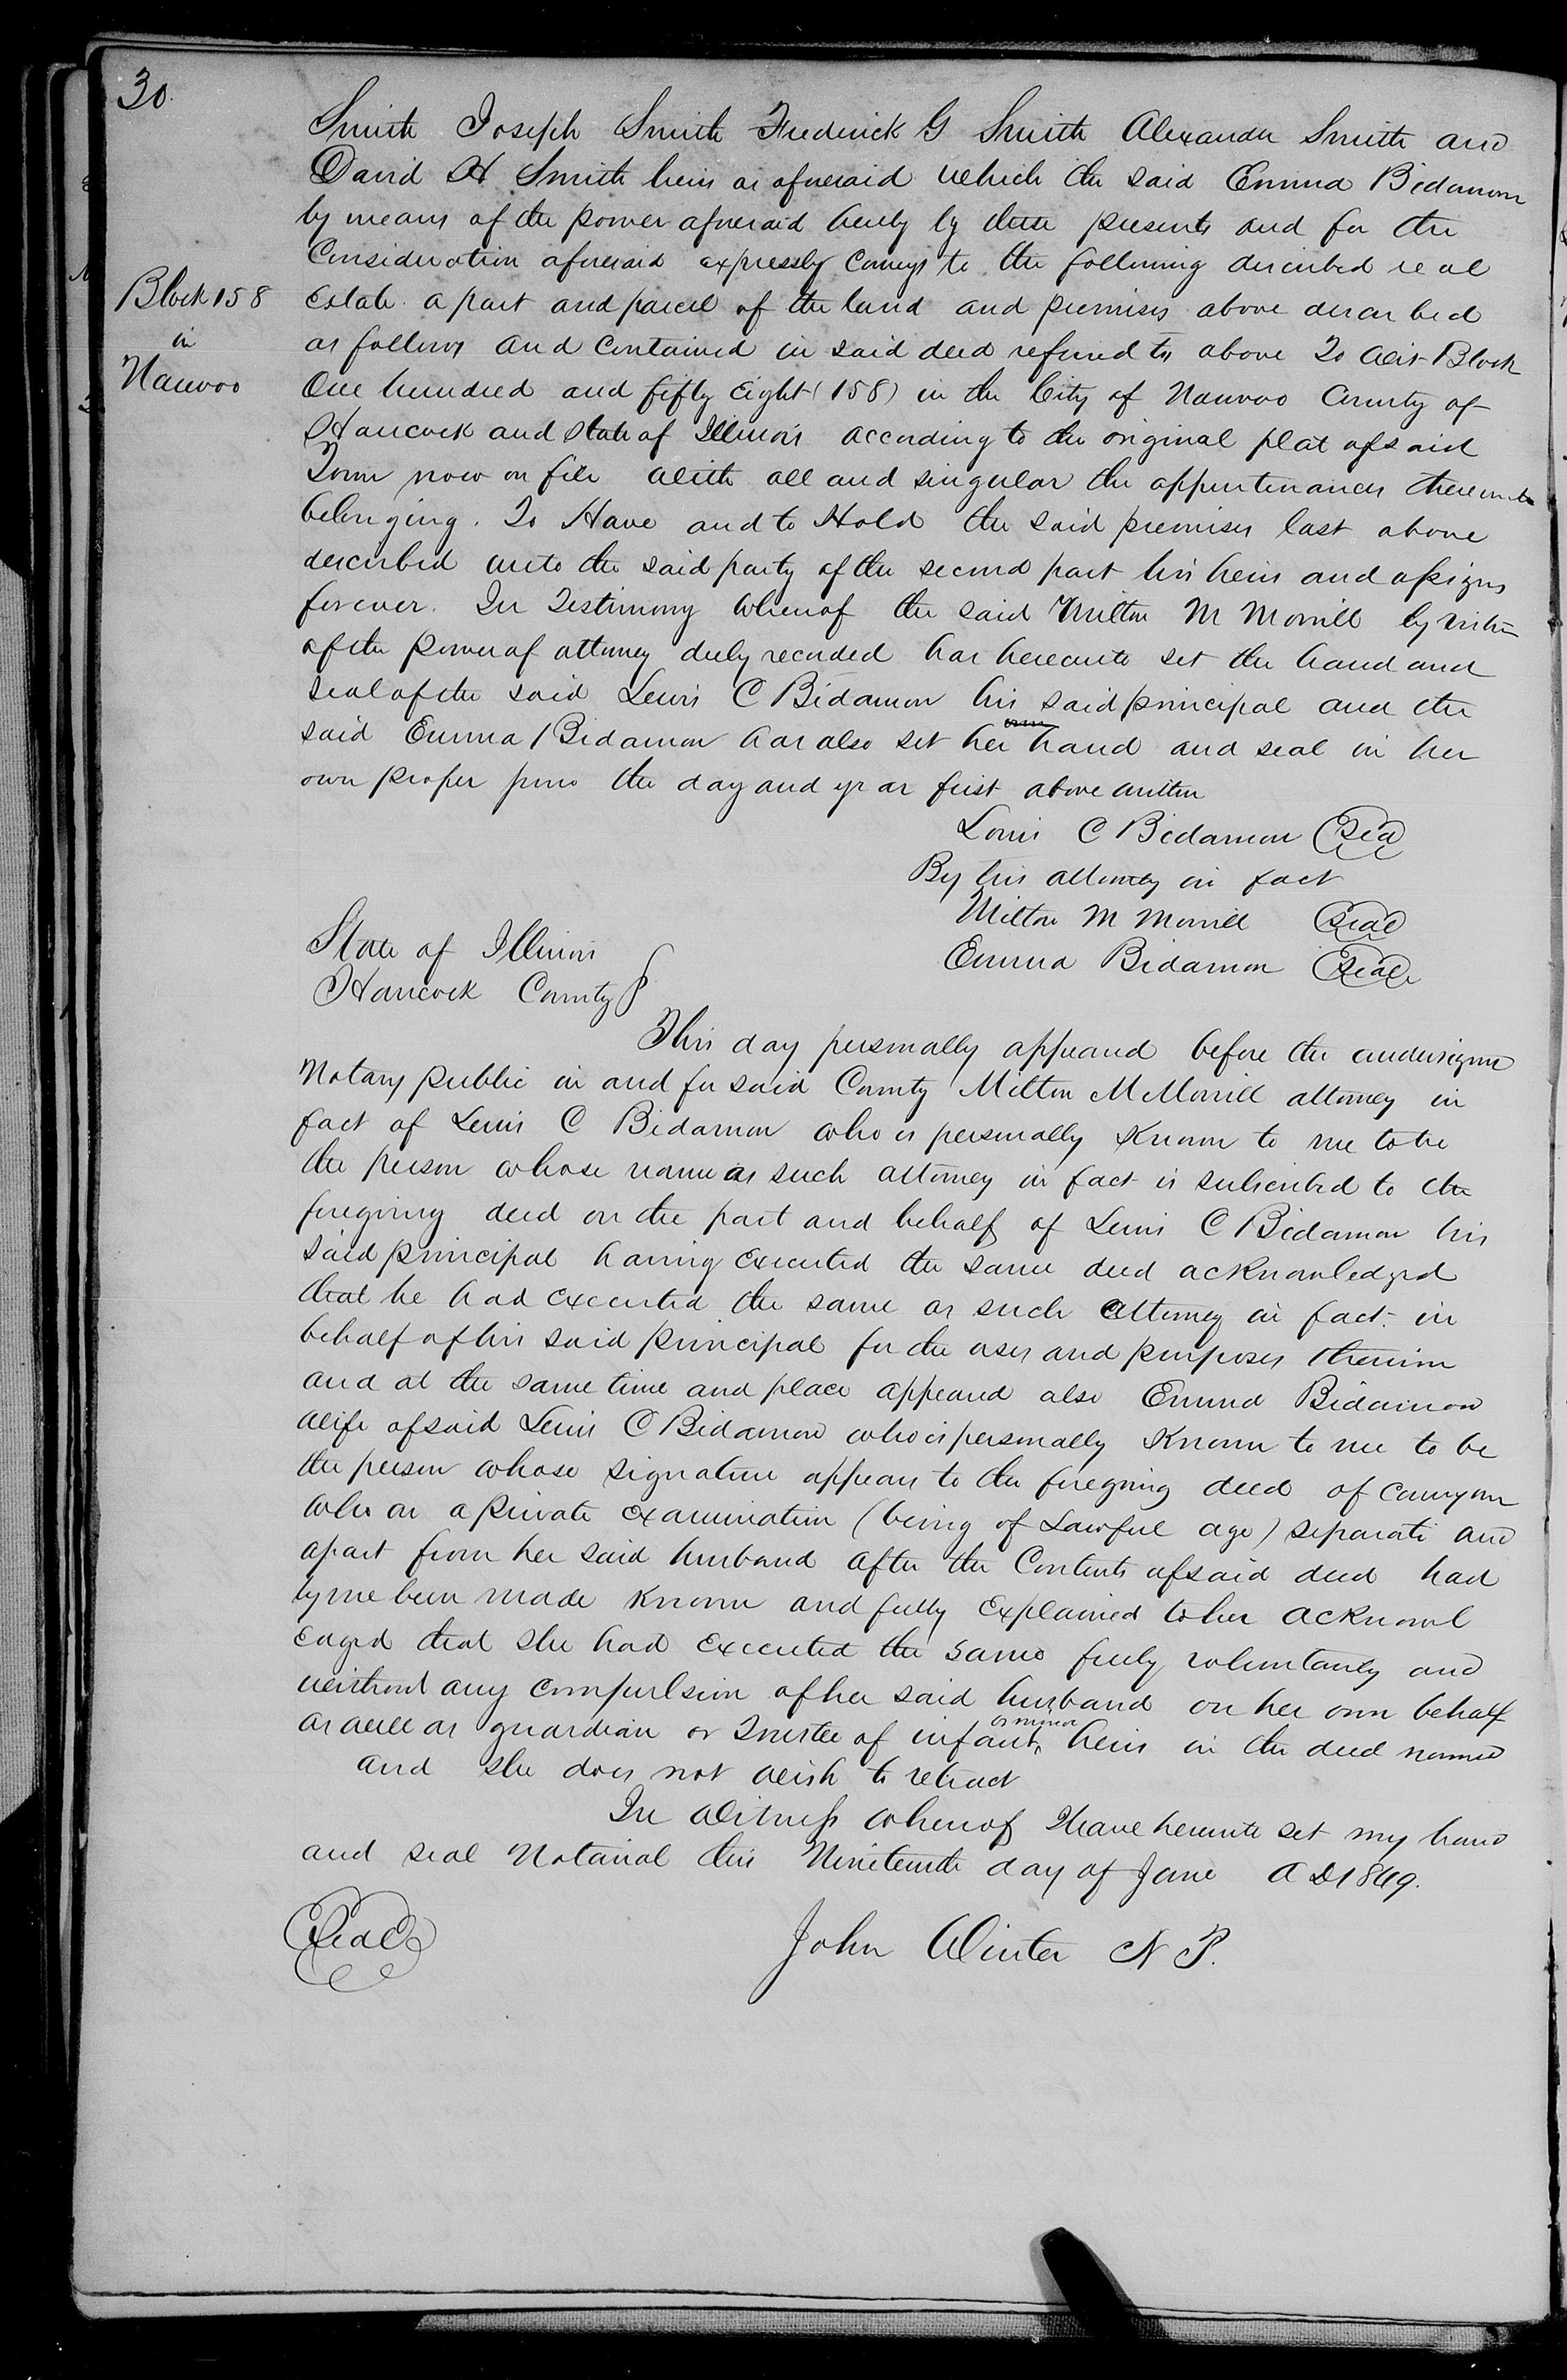 30.
Smith Joseph Smith Frederick G Smith Alexander Smith and
David H Smith heirs as aforesaid which the said Emma Bidamon
by means of the power aforesaid hereby by these presents and for the
Consideration aforesaid expressly conveys to the following described real
Block 158
in
Nauvoo
Estate a part and parcel of the land and premises above described
as follows and contained in said deed referred to above To wit Block
One hundred and fifty Eight (158) in the City of Nauvoo County of
Hancock and State of Illinois according to the original plat of said
Town now on file with all and singular the appurtenances thereunto
belonging. To Have and to Hold the said premises last above
described unto the said party of the second part his heirs and assigns
forever. In Testimony Whereof the said Milton M Morrill by virtue
of the Power of attorney duly recorded has hereunto set the hand and
seal of the said Lewis C Bidamon his said principal and the
said Emma Bidamon has also set her hand and seal in her
own proper person the day and year first above written
Louis C Bidamon Seal
By his attorney in fact
Milton M Morrill Seal
Emma Bidamon Seal
State of Illinois
Hancock County
This day personally appeared before the undersigned
Notary public in and for said County Milton M Morrill attorney in
fact of Lewis C Bidamon who is personally Known to me to be
the person whose name as such attorney in fact is subscribed to the
foregoing deed on the part and behalf of Lewis C Bidamon his
said principal having Executed the same deed acknowledged
that he had executed the same as such attorney in fact in
behalf of his said principal for the uses and purposes therein
and at the same time and place appeared also Emma Bidamon
wife of said Lewis C Bidamon who is personally Known to me to be
the person whose signature appears to the foregoing deed of
who on a private examination (being of Lawful age) separate and
apart from her said husband after the Contents of said deed had
by me been made Known and fully Explained to her acknowl
edged that she had executed the same freely voluntarily and
without any compulsion of her said husband on her own behalf
as well as guardian or Trustee of infant or minor heirs in the deed named
and she does not wish to retract
In Witness whereof I have hereunto set my hand
and seal Notarial this Nineteenth day of June A D 1849.
Seal
John Winter N P.